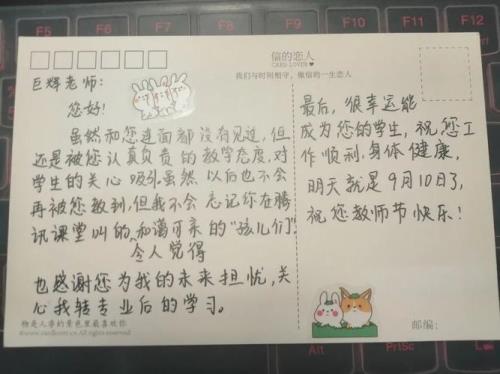 F5
F6
F7
F8
F9
F10
F11
F12
信的恋人
CARD LOVER
我们与时间相守，做信的一生恋人
巨辉老师：
您好！
虽然和您连面都没有见过，但
还是被您认真负责的教学态度，对
学生的关心吸引。虽然以后也不会
再被您教到，但我不会忘记你在腾
讯课堂叫的和蔼可亲的“孩儿们”，
令人觉得
也感谢您为我的未来担忧，关
心我转专业后的学习。
最后，很幸运能
成为您的学生，祝您工
作顺利，身体健康，
明天就是9月10日了，
祝您教师节快乐！
物是人非的景色里最喜欢你
邮编：
Alt
PrtSc